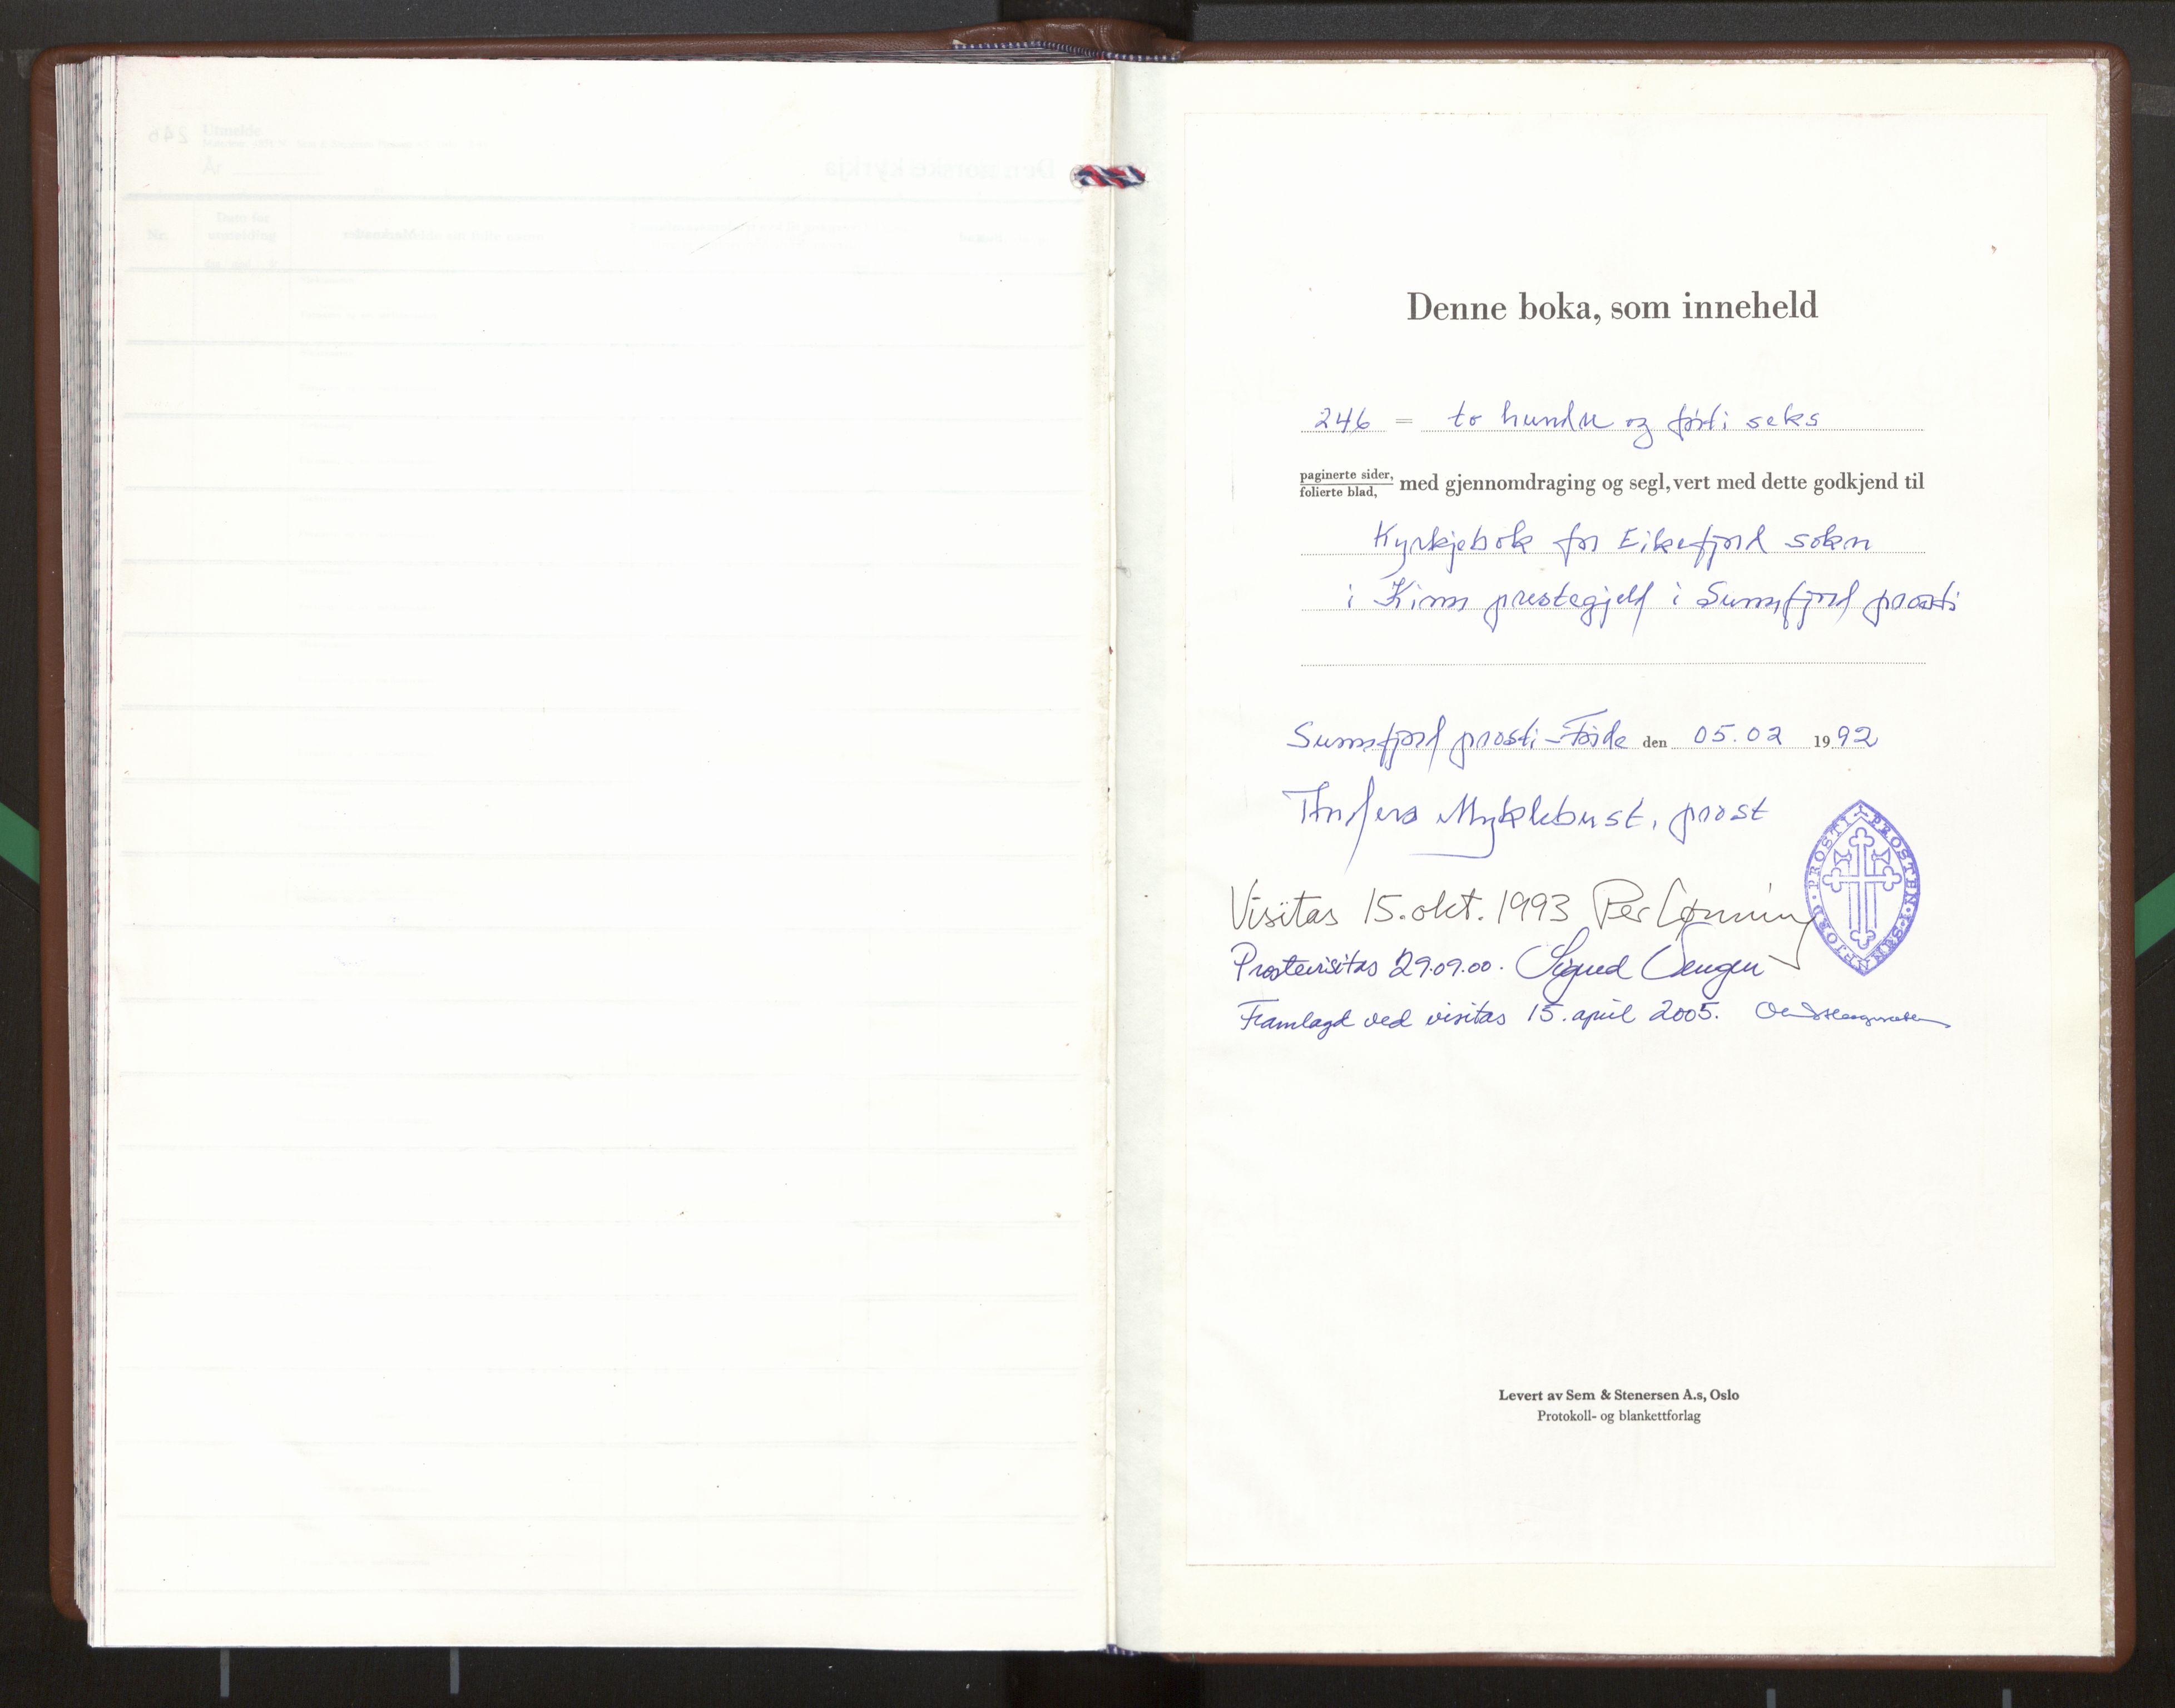 246
Utmelde
År
Den norske kyrkja
Nr.
Dato for
utmelding
Merknader
Denne boka, som inneheld
246 = to hundre og førti seks
paginerte sider,
folierte blad,
med gjennomdraging og segl, vert med dette godkjend til
Kyrkjebok for Eikefjord sokn
i Kinn prestegjeld i Sunnfjord prosti
Sunnfjord prosti - Førde den 05.02 1992
Anders Myklebust, prost
PROSTEN · I · SUNNFJORD · PROSTI
Visitas 15. okt. 1993 Per Lønning
Prostevisitas 29.09.00. Sigurd Vengen
Framlagd ved visitas 15. april 2005.
Levert av Sem & Stenersen A.s, Oslo
Protokoll- og blankettforlag